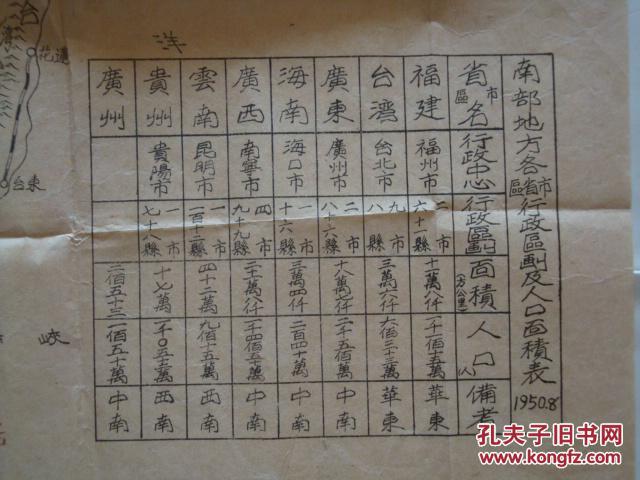 南部地方各省市區行政區劃及人口面積表
1950.8
省市區名 行政中心 行政區劃 面積(方公里) 人口(人) 備考
福建 福州市 二市六十一縣 十二萬八仟 一千一佰七十五萬 華東
台灣 台北市 九市八縣 三萬六仟 六佰三十三萬 華東
廣東 廣州市 二市八十六縣 十八萬七仟 二千五佰萬 中南
海南 海口市 一市十六縣 三萬四仟 二百四十萬 中南
廣西 南寧市 四市九十九縣 二十一萬八仟 一千四佰五十萬 中南
雲南 昆明市 一市一百十二縣 四十二萬 九佰十五萬 西南
貴州 貴陽市 一市七十八縣 十七萬 一千〇五十萬 西南
廣州 二佰五十三 一佰五十萬 中南
洋
蓮花
台東
台
峽
孔夫子旧书网
www.kongfz.com